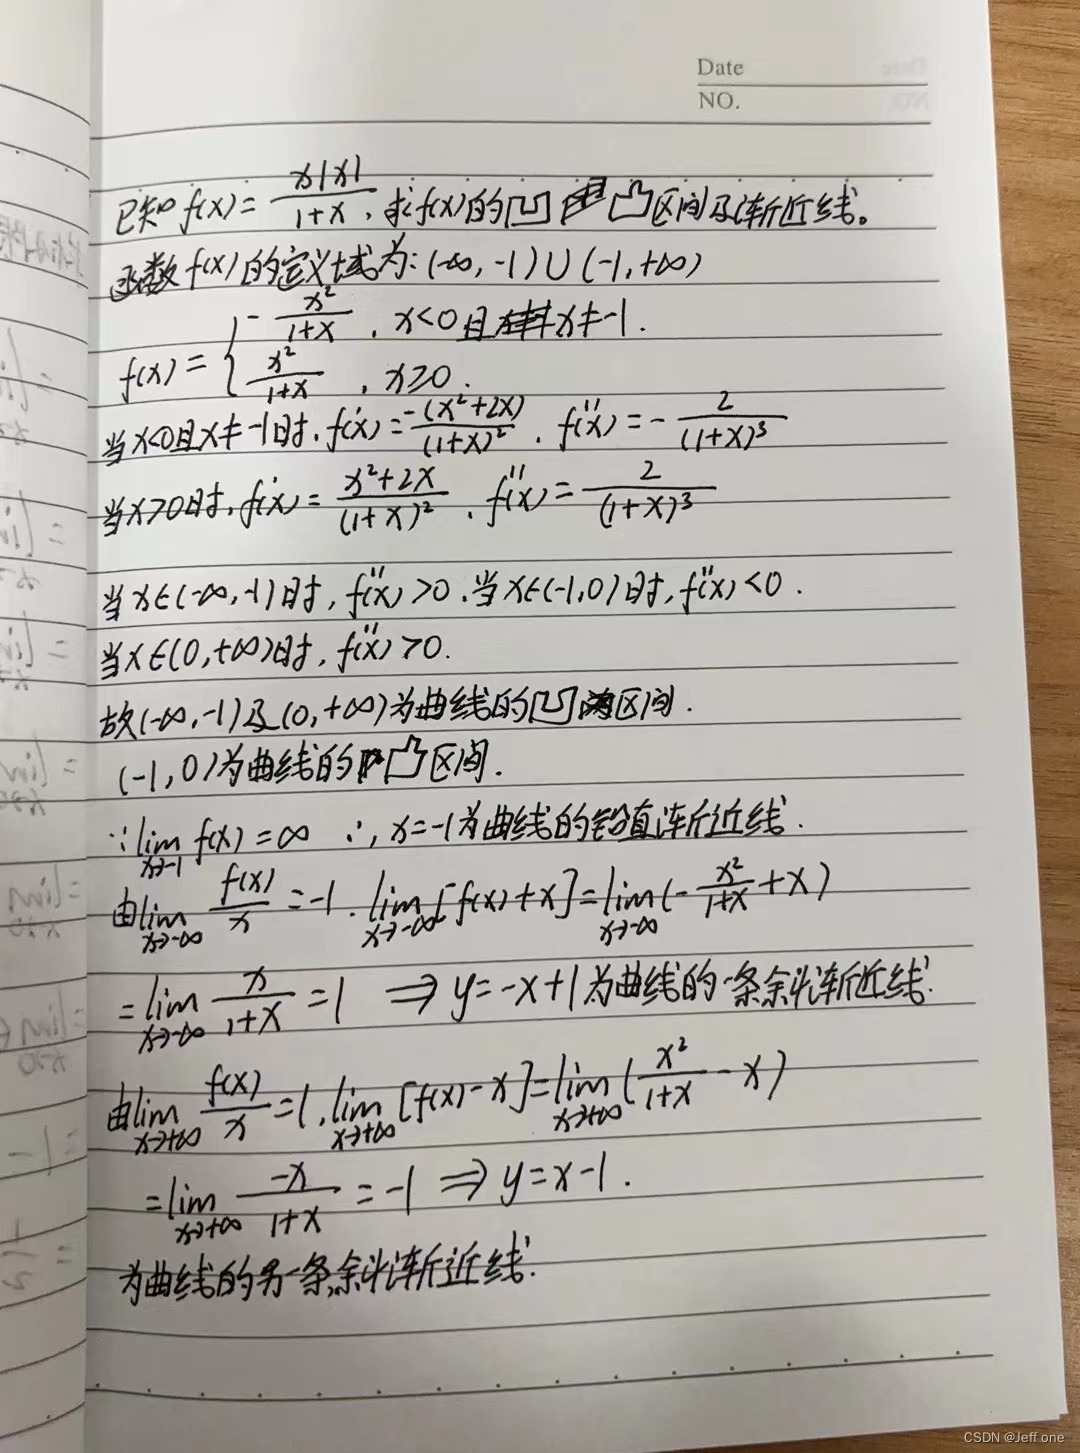 Date
NO.
已知f(x)=x|x|/(1+x),求f(x)的凹凸区间及渐近线。
函数f(x)的定义域为:(-∞,-1)∪(-1,+∞)
f(x)={ -x²/(1+x) , x<0且x≠-1.
x²/(1+x) , x≥0.
当x<0且x≠-1时,f'(x)=-(x²+2x)/(1+x)² , f''(x)=-2/(1+x)³
当x>0时,f'(x)=(x²+2x)/(1+x)² , f''(x)=2/(1+x)³
当x∈(-∞,-1)时,f''(x)>0.当x∈(-1,0)时,f''(x)<0.
当x∈(0,+∞)时,f''(x)>0.
故(-∞,-1)及(0,+∞)为曲线的凹区间.
(-1,0)为曲线的凸区间.
∵lim x→-1 f(x)=∞ ∴x=-1为曲线的铅直渐近线.
由lim x→-∞ f(x)/x=-1.lim x→-∞[f(x)+x]=lim x→-∞(-x²/(1+x)+x)
=lim x→-∞ x/(1+x)=1 ⇒y=-x+1为曲线的一条斜渐近线.
由lim x→+∞ f(x)/x=1,lim x→+∞[f(x)-x]=lim x→+∞(x²/(1+x)-x)
=lim x→+∞ -x/(1+x)=-1 ⇒y=x-1.
为曲线的另一条斜渐近线.
CSDN @Jeff one